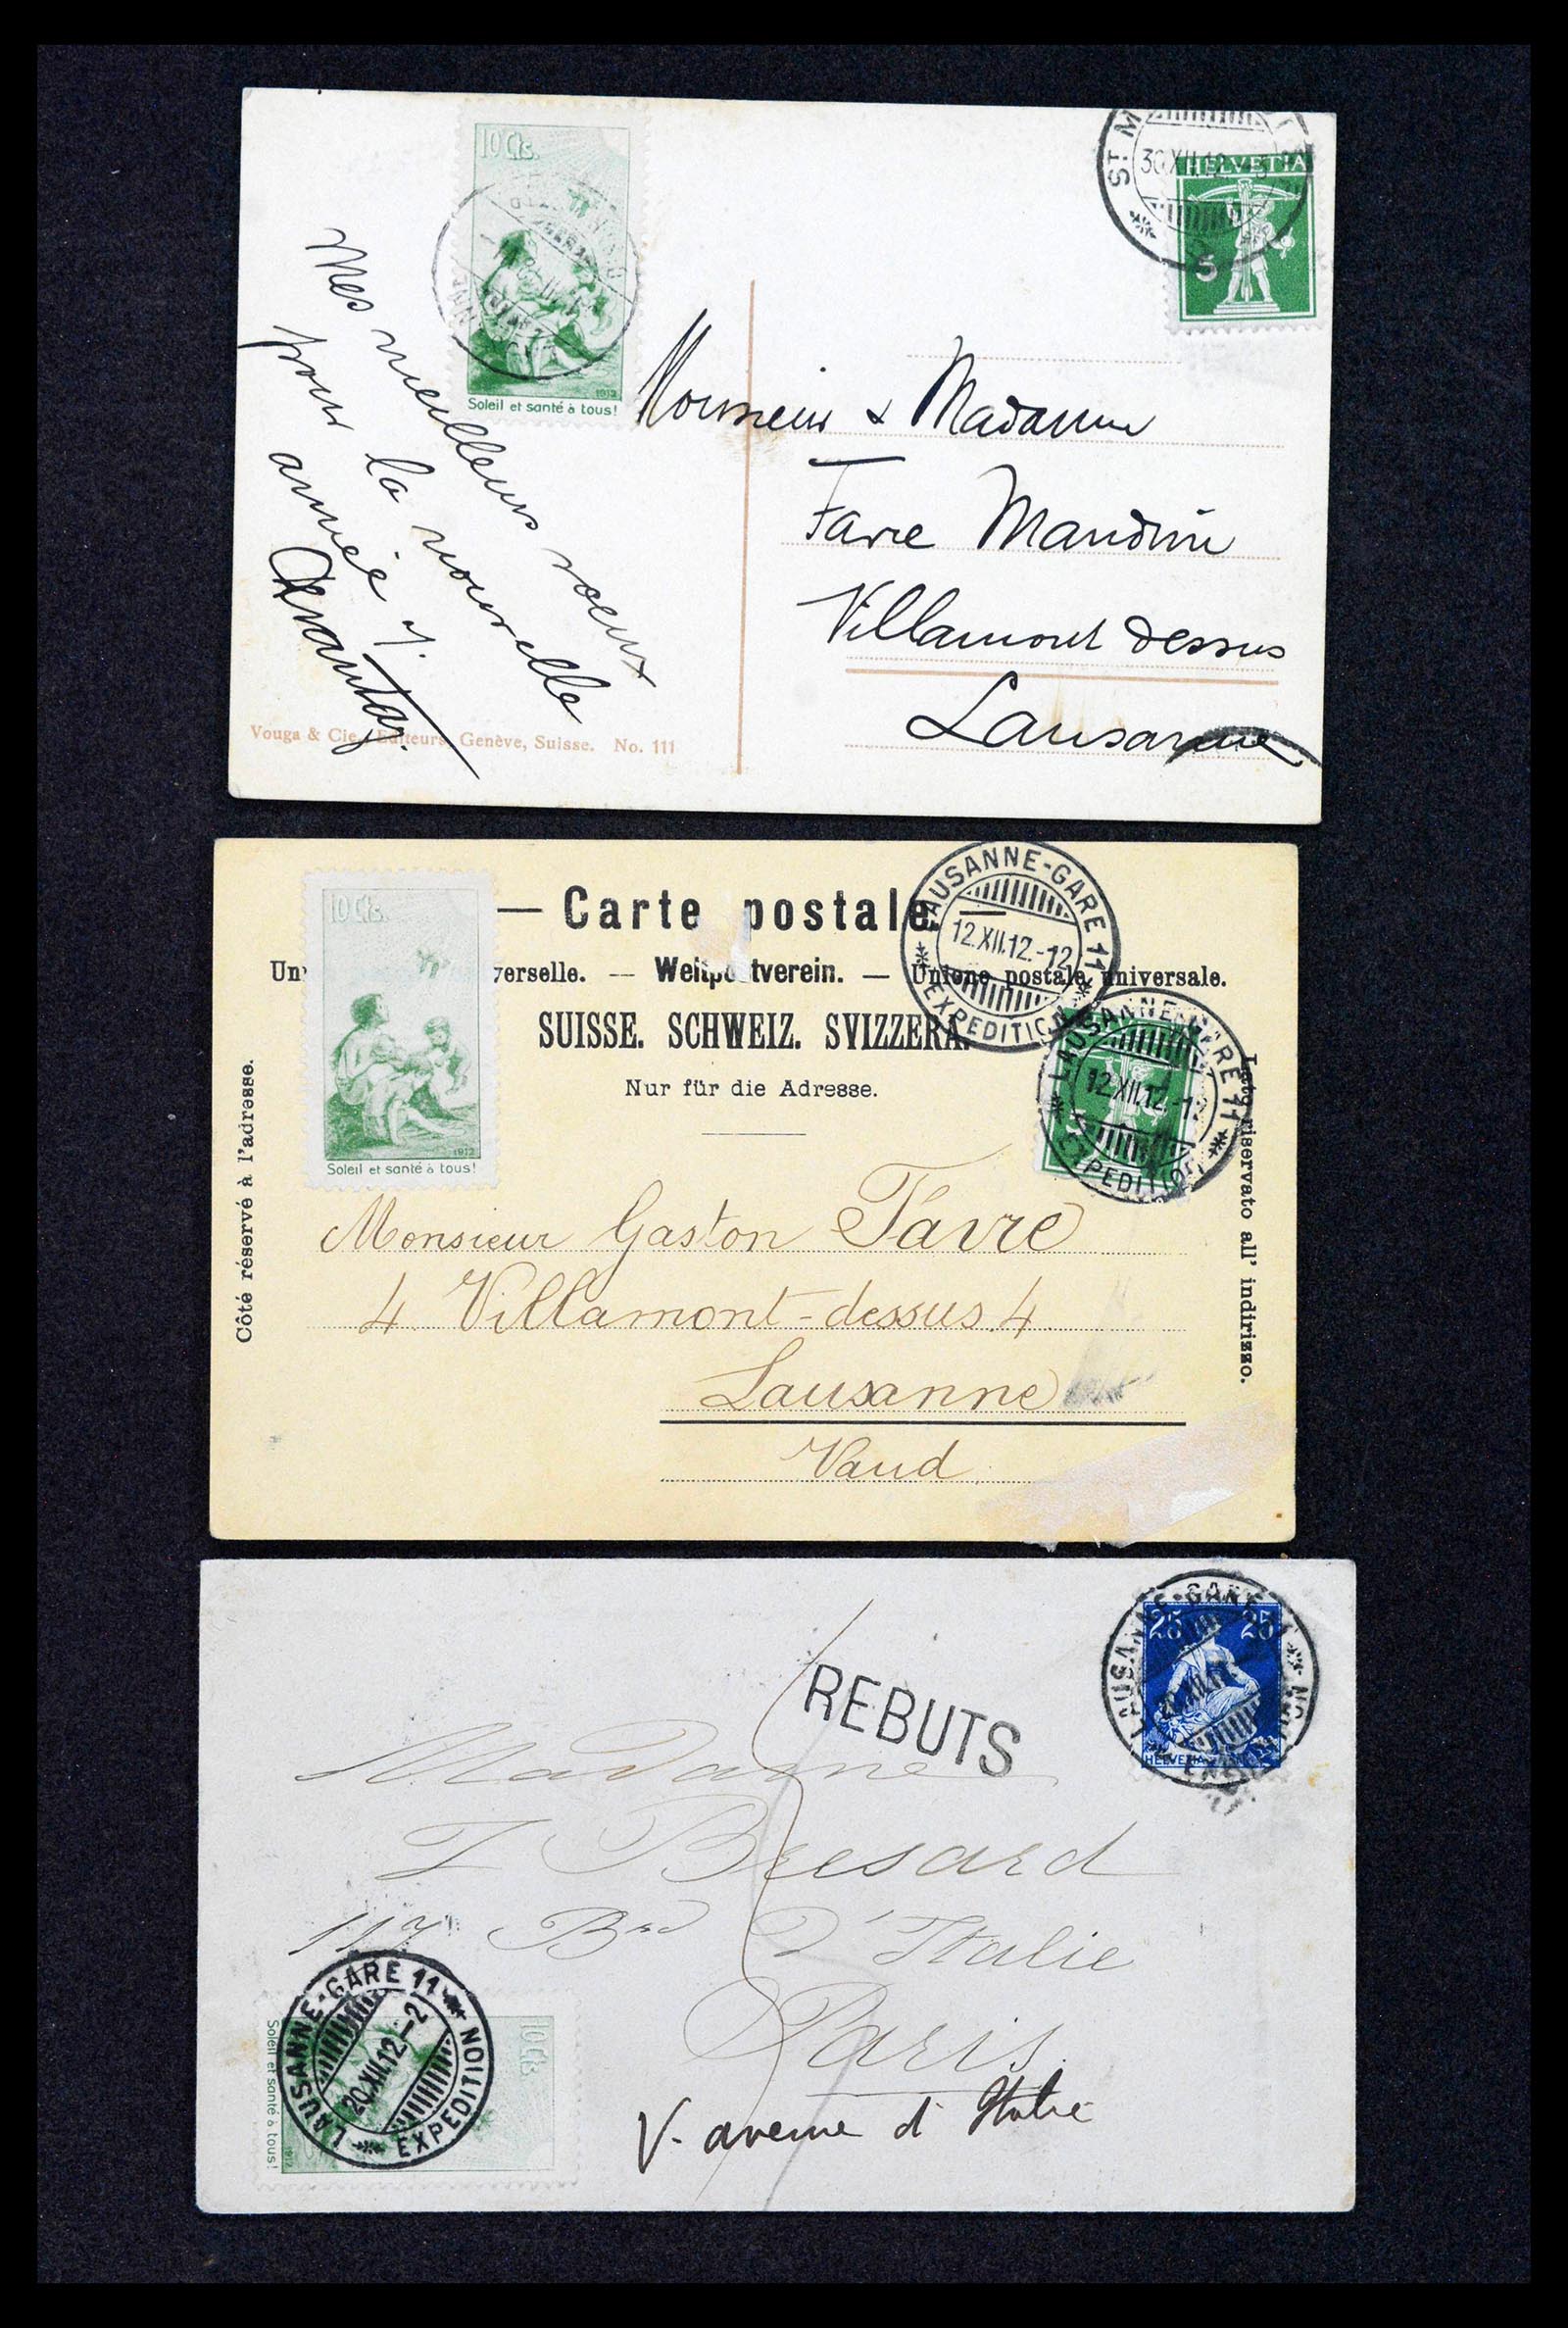 10 Cts.
1912
Soleil et santé à tous!
ST. M
30.XII.12.
HELVETIA
5
Mes meilleurs voeux
pour la nouvelle
année
Monsieur & Madame
Favre
Villamont dessus
Lausanne
Vouga & Cie., Editeurs, Genève, Suisse. No. 111
10 Cts.
1912
Soleil et santé à tous!
— Carte postale. —
verselle. — Weltpostverein. — Unione postale universale.
SUISSE. SCHWEIZ. SVIZZERA.
Nur für die Adresse.
Côté réservé à l'adresse.
Lato riservato all' indirizzo.
LAUSANNE-GARE 11
12.XII.12.-12
EXPEDITION
LAUSANNE-GARE 11
12.XII.12.-12
EXPEDITION
5
Monsieur Gaston Favre
4. Villamont-dessus. 4
Lausanne
Vaud
25 25
HELVETIA
LAUSANNE-GARE
REBUTS
Madame
117 Bard d'Italie
Paris
V. avenue d'Italie
LAUSANNE-GARE 11
20.XII.12.-2
EXPEDITION
10 Cts.
1912
Soleil et santé à tous!